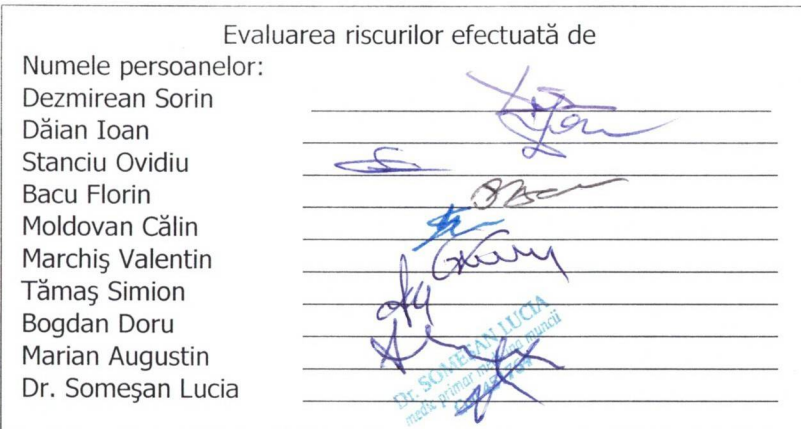 Evaluarea riscurilor efectuată de
Numele persoanelor:
Dezmirean Sorin
Dăian Ioan
Stanciu Ovidiu
Bacu Florin
Moldovan Călin
Marchiş Valentin
Tămaş Simion
Bogdan Doru
Marian Augustin
Dr. Someşan Lucia
Dr. SOMEŞAN LUCIA
medic primar medicina muncii